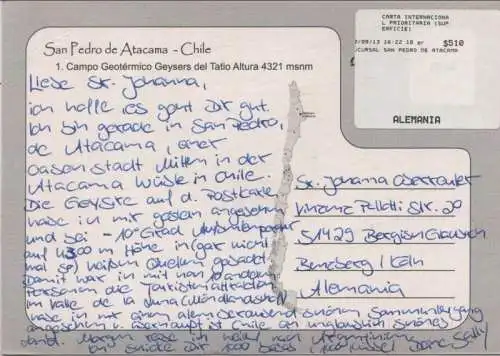 San Pedro de Atacama - Chile
1. Campo Geotérmico Geysers del Tatio Altura 4321 msnm
CARTA INTERNACIONA
L PRIORITARIA (SUP
ERFICIE)
/09/13 16:22 18 gr $510
SUCURSAL SAN PEDRO DE ATACAMA
ALEMANIA
Liebe Sr. Johanna,
ich hoffe es geht Dir gut.
Ich bin gerade in San Pedro,
de Atacama, einer
Oasenstadt mitten in der
Atacama Wüste in Chile.
Die Geysire auf d. Postkarte
habe ich mir gestern angesehen
und bei -10 Grad Außentemperatur
auf 4300 m Höhe in (gar nicht
mal so) heißen Quellen gebadet.
Damit war ich mit 10 anderen
Personen die Touristenattraktion
im Valle de la Luna (Mondlandschaft)
habe ich mir einen schönen Sonnenuntergang
angesehen und überhaupt ist Chile ein unglaublich schönes
Land. Morgen reise ich weiter nach
ich schicke dir 1000 Deine Sally
Sr. Johanna
Vinzenz Pallotti Str. 20
51429 Bergisch Gladbach
Bensberg / Köln
Alemania